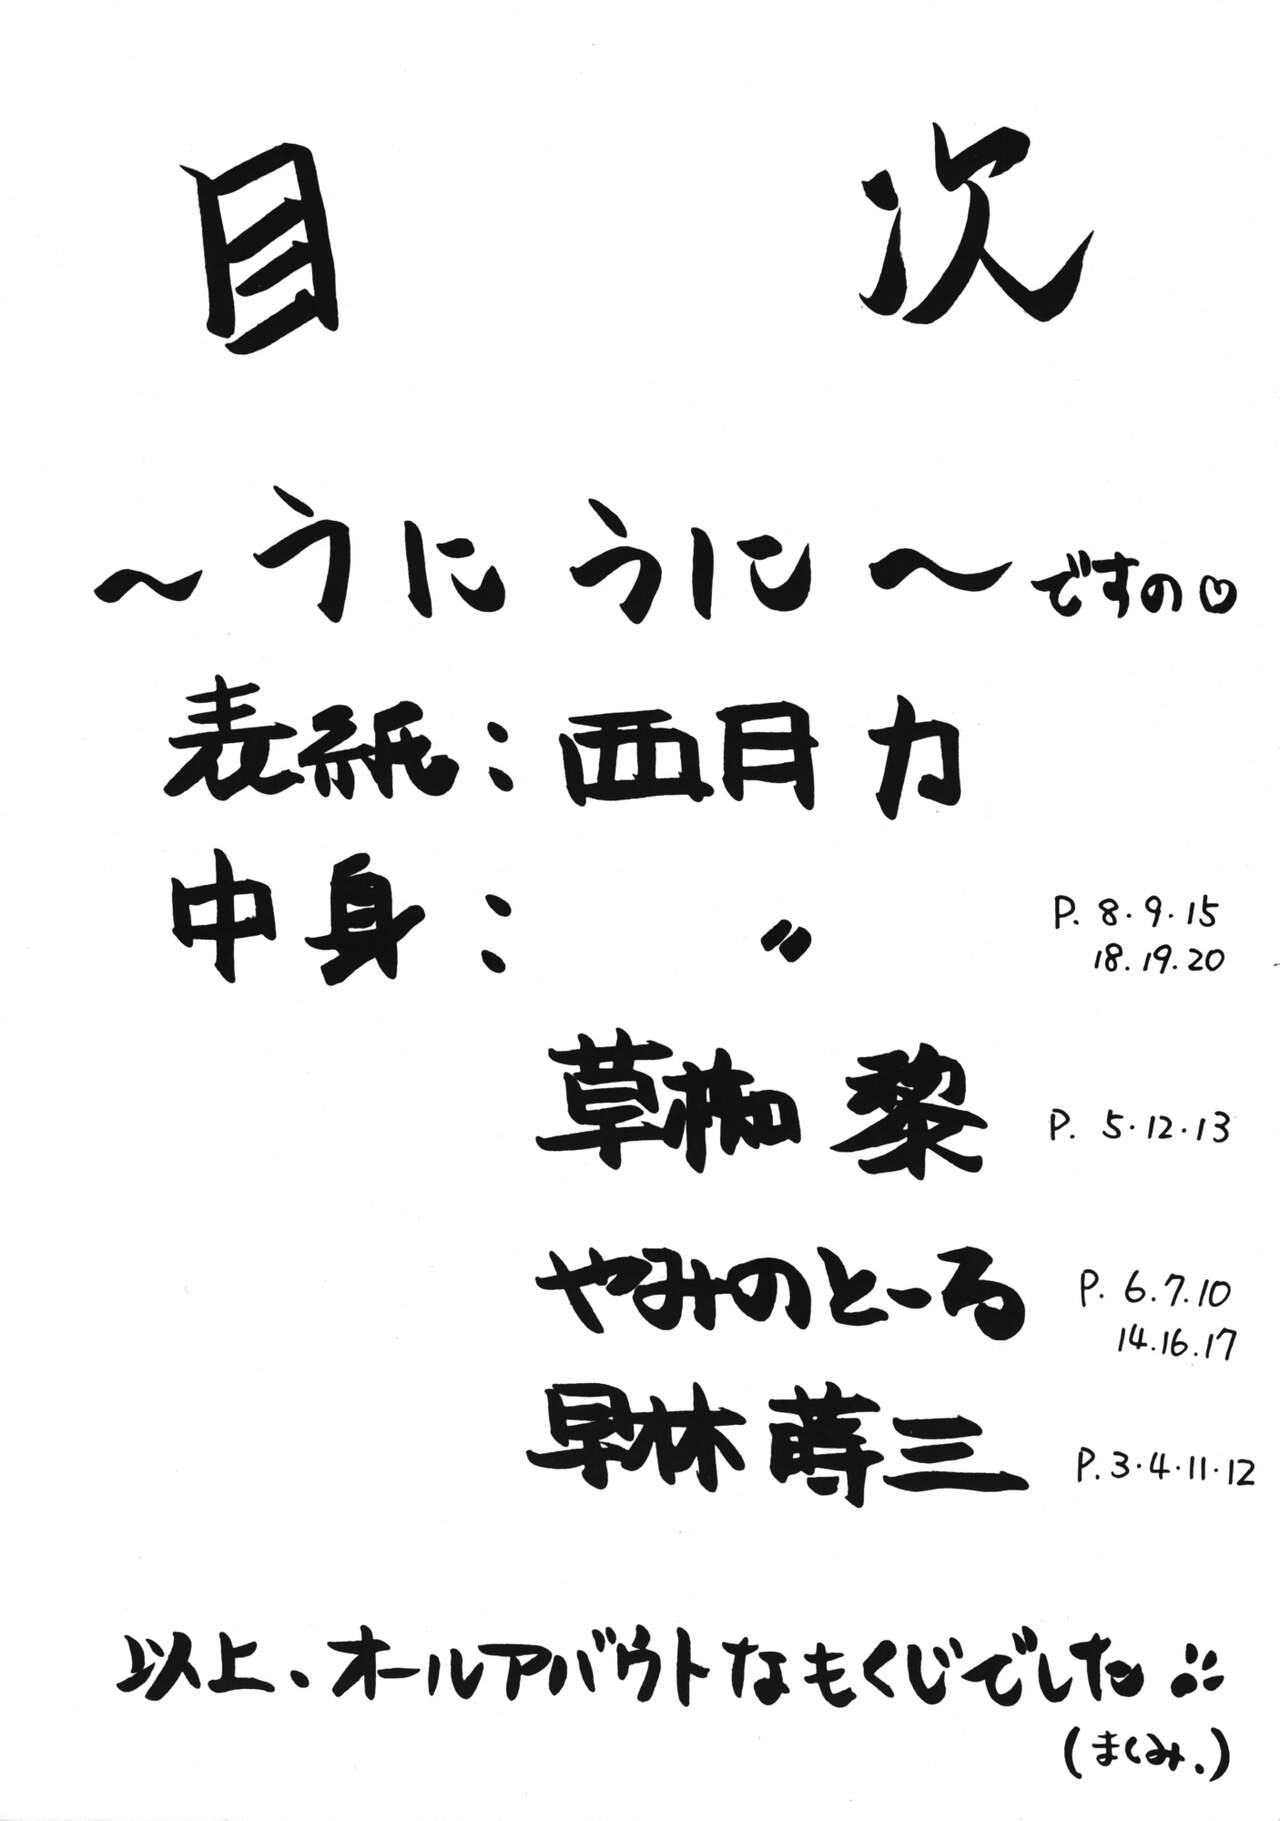 目 次
～うにうに～ですの♡
表紙：西月力
中身： 〃 P. 8・9・15
18.19.20
草枷 黎 P. 5・12・13
やみのとーる P. 6.7.10
14.16.17
早林蒔三 P.3・4・11・12
以上、オールアバウトなもくじでした
(まくみ.)